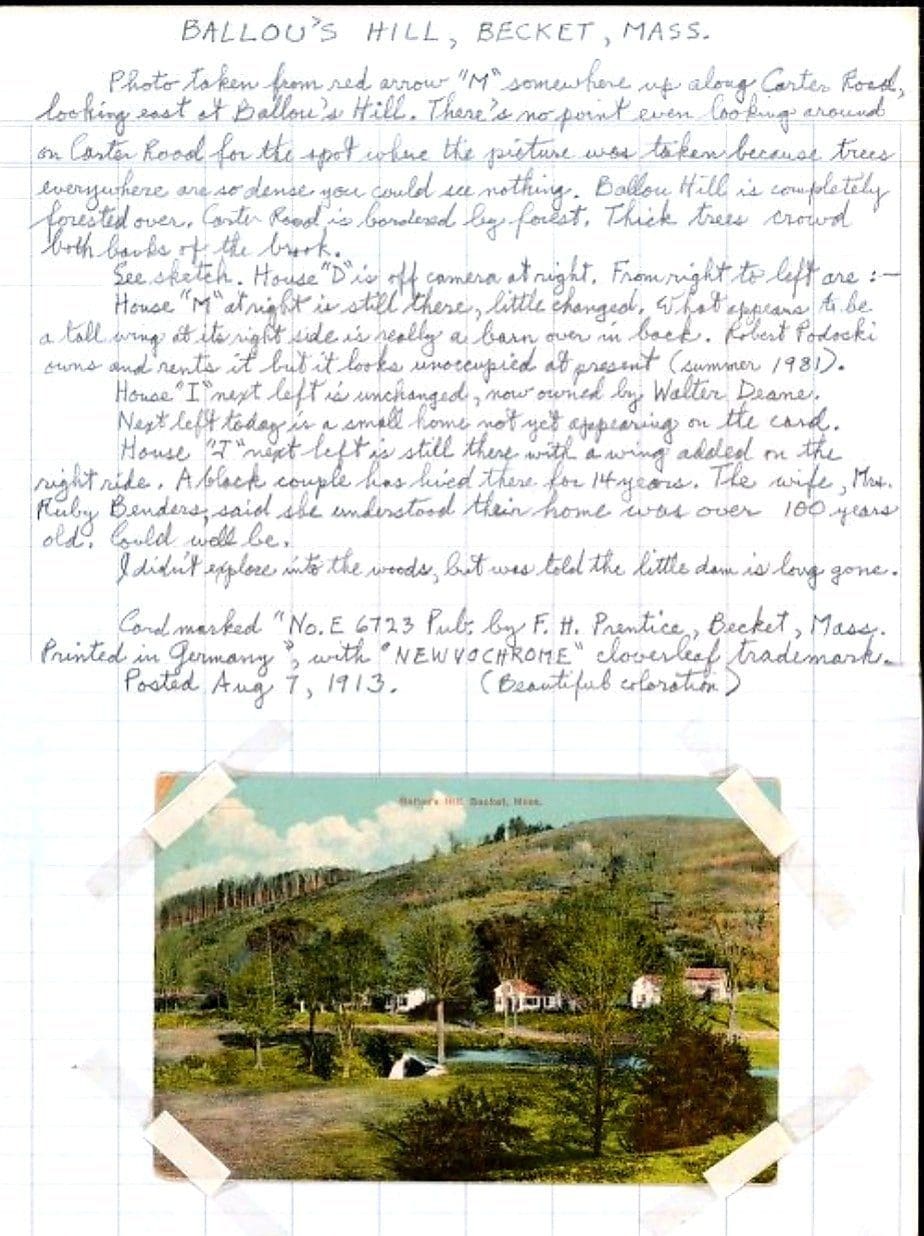 BALLOU'S HILL, BECKET, MASS.
Photo taken from red arrow "M" somewhere up along Carter Road,
looking east at Ballou's Hill. There's no point even looking around
on Carter Road for the spot where the picture was taken because trees
everywhere are so dense you could see nothing. Ballou Hill is completely
forested over. Carter Road is bordered by forest. Thick trees crowd
both banks of the brook.
See sketch. House "D" is off camera at right. From right to left are :-
House "M" at right is still there, little changed. What appears to be
a tall wing at its right side is really a barn over in back. Robert Podocki
owns and rents it but it looks unoccupied at present (summer 1981).
House "I" next left is unchanged, now owned by Walter Deane.
Next left today is a small home not yet appearing on the card.
House "J" next left is still there with a wing added on the
right ride. A black couple has lived there for 14 years. The wife, Mrs.
Ruby Benders, said she understood their home was over 100 years
old. Could well be.
I didn't explore into the woods, but was told the little dam is long gone.
Card marked "No. E 6723 Pub. by F. H. Prentice, Becket, Mass.
Printed in Germany", with "NEWVOCHROME" cloverleaf trademark.
Posted Aug 7, 1913. (Beautiful coloration)
Ballou's Hill, Becket, Mass.